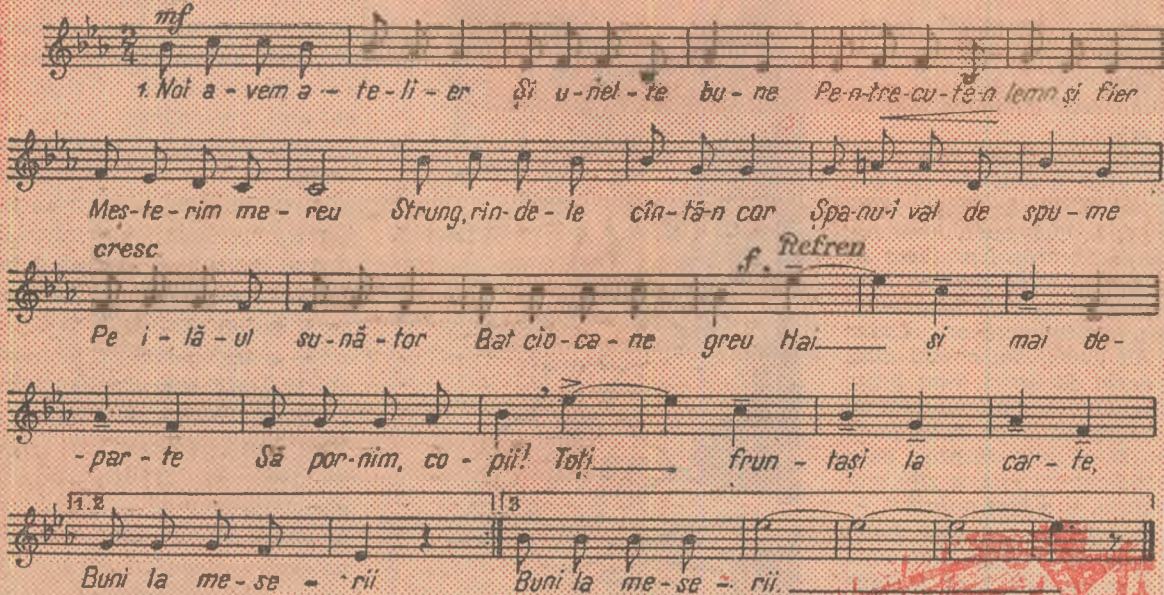 mf
1. Noi a - vem a - te - li - er Și u - nel - te bu - ne Pe-n-tre-cu-te-n lemn și fier
Meș - te - rim me - reu Strung, rin - de - le cîn - tă-n cor Șpa-nu-i val de spu - me
cresc.
f. Refren
Pe i - lă - ul su - nă - tor Bat cio - ca - ne greu Hai și mai de -
- par - te Să por - nim, co - pii! Toți frun - tași la car - te,
1.2 3
Buni la me - se - rii Buni la me - se - rii.